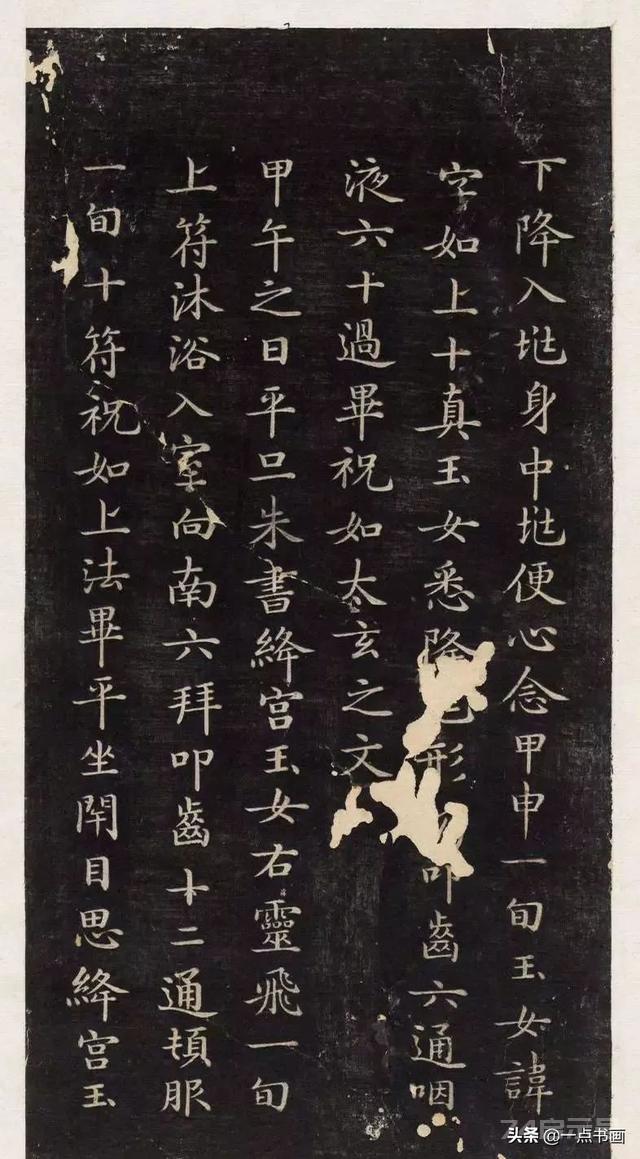 下降入垗身中垗便心念甲申一旬玉女諱
字如上十真玉女悉降形叩齒六通咽
液六十過畢祝如太玄之文
甲午之日平旦朱書絳宫玉女右靈飛一旬
上符沐浴入室向南六拜叩齒十二通頓服
一旬十符祝如上法畢平坐閇目思絳宫玉
头条 @一点书画